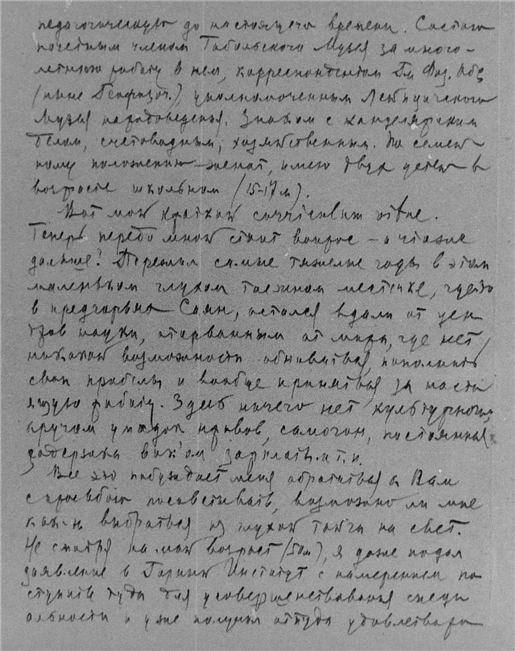 педагогическую до настоящего времени. Состою
почетным членом Тобольского Музея за много-
летнюю работу в нем, корреспондентом Гл. Физ. Обс
(ныне Геофизич.) уполномоченным Лейпцигского
Музея народоведения. Знаком с канцелярским
делом, счетоводным, хозяйственным. По семей
ному положению – женат, имею двух детей в
возрасте школьном (15-17 л).
Вот мой краткий curriculum vitae.
Теперь передо мной стоит вопрос – а что же
дальше? Пережил самые тяжелые годы в этом
маленьком глухом таежном местечке, где-то
в предгорьях Саян, остался вдали от цен
тров науки, оторванным от мира, где нет
никакой возможности обновиться, пополнить
свои пробелы и вообще приняться за насто
ящую работу. Здесь ничего нет культурного,
кругом упадок нравов, самогон, постоянная
задержка зарплаты и т. п.
Все это побуждает меня обратиться к Вам
с просьбой посоветовать, возможно ли мне
как-н выбраться из глухой тайги на свет.
Не смотря на мой возраст (50 л), я даже подал
заявление в Горный Институт с намерением по
ступить туда для усовершенствования специ
альности и уже получил оттуда удовлетвори